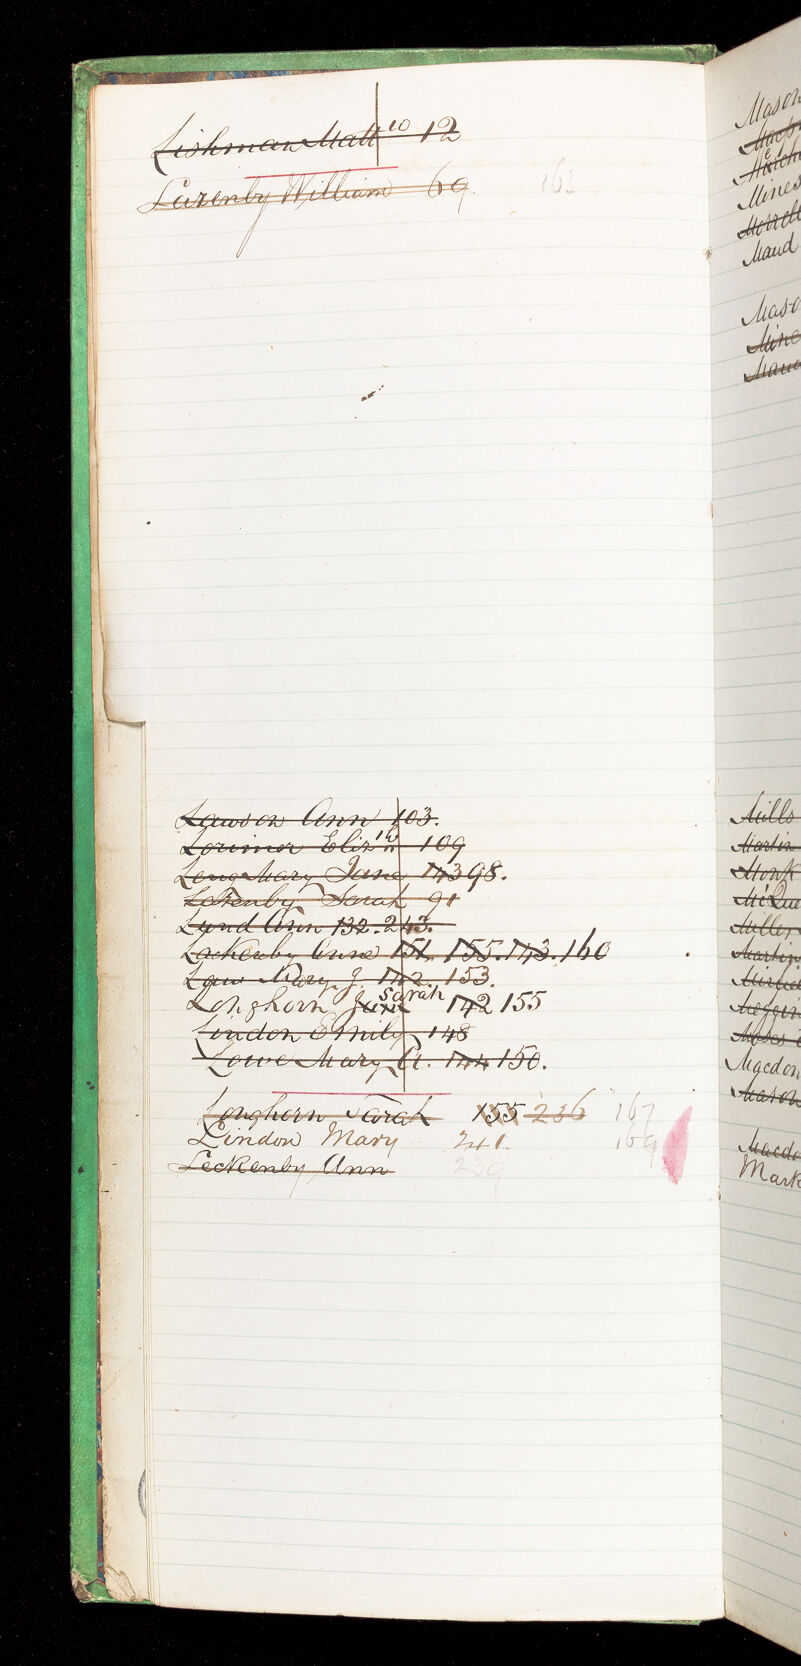 Lishman Matt 10 12
Lazenby William 69 163
Lawson Ann 103.
Lorimer Elizth 109
Leng Mary Jane 143 98.
Lazenby Sarah 91
Lund Ann 132. 243.
Lackenby Anne 151. 155. 143. 160
Law Mary J. 142. 153.
Longhorn Jane Sarah 142 155
Lindon Emily 148
Lowe Mary A. 144 150.
Longhorn Sarah 155 236 167
Lindon Mary 241. 169
Leckenby Ann 239
Mason
Mines
Morrell
Maud
Maso
Mills
Martin
Monk
McQue
Miller
Martin
Moses
Macdon
Mason
Macdo
Mark